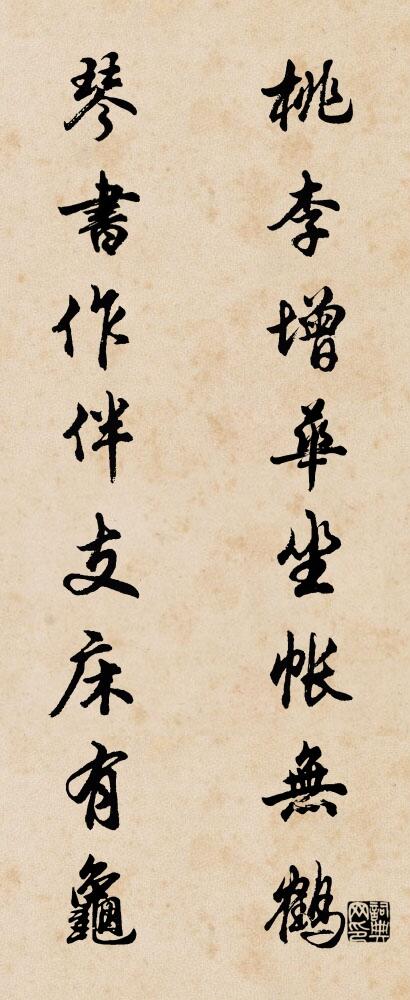 桃李增華坐帳無鶴
琴書作伴支床有龜
詞典网印